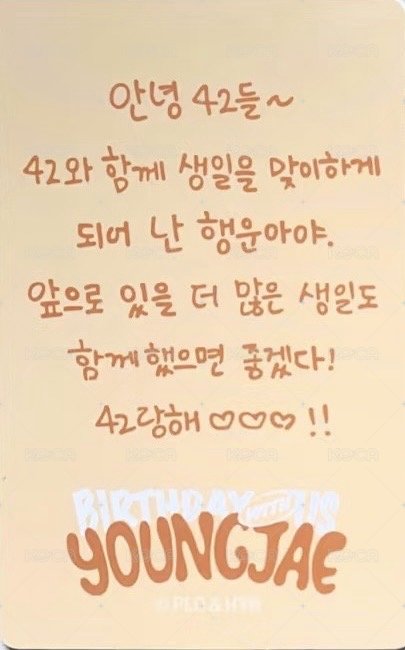 안녕 42들~
42와 함께 생일을 맞이하게
되어 난 행운아야.
앞으로 있을 더 많은 생일도
함께했으면 좋겠다!
42랑해 ♡♡♡ !!
BIRTHDAY WITH US
YOUNGJAE
© PLEDIS & HYBE